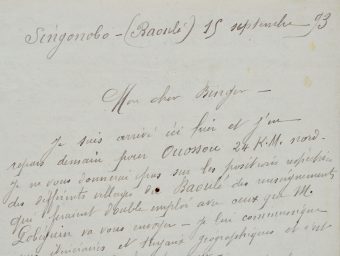 Singonobo - (Baoulé) 15 septembre 93
Mon cher Binger -
Je suis arrivé ici hier et j'en
repars demain pour Ouossou 24 K.M. nord.
Je ne vous donnerai pas sur les positions respectives
des différents villages du Baoulé des renseignements
qui feraient double emploi avec ceux que M.
va vous envoyer - Je lui communique
itinéraires et géographiques et c'est